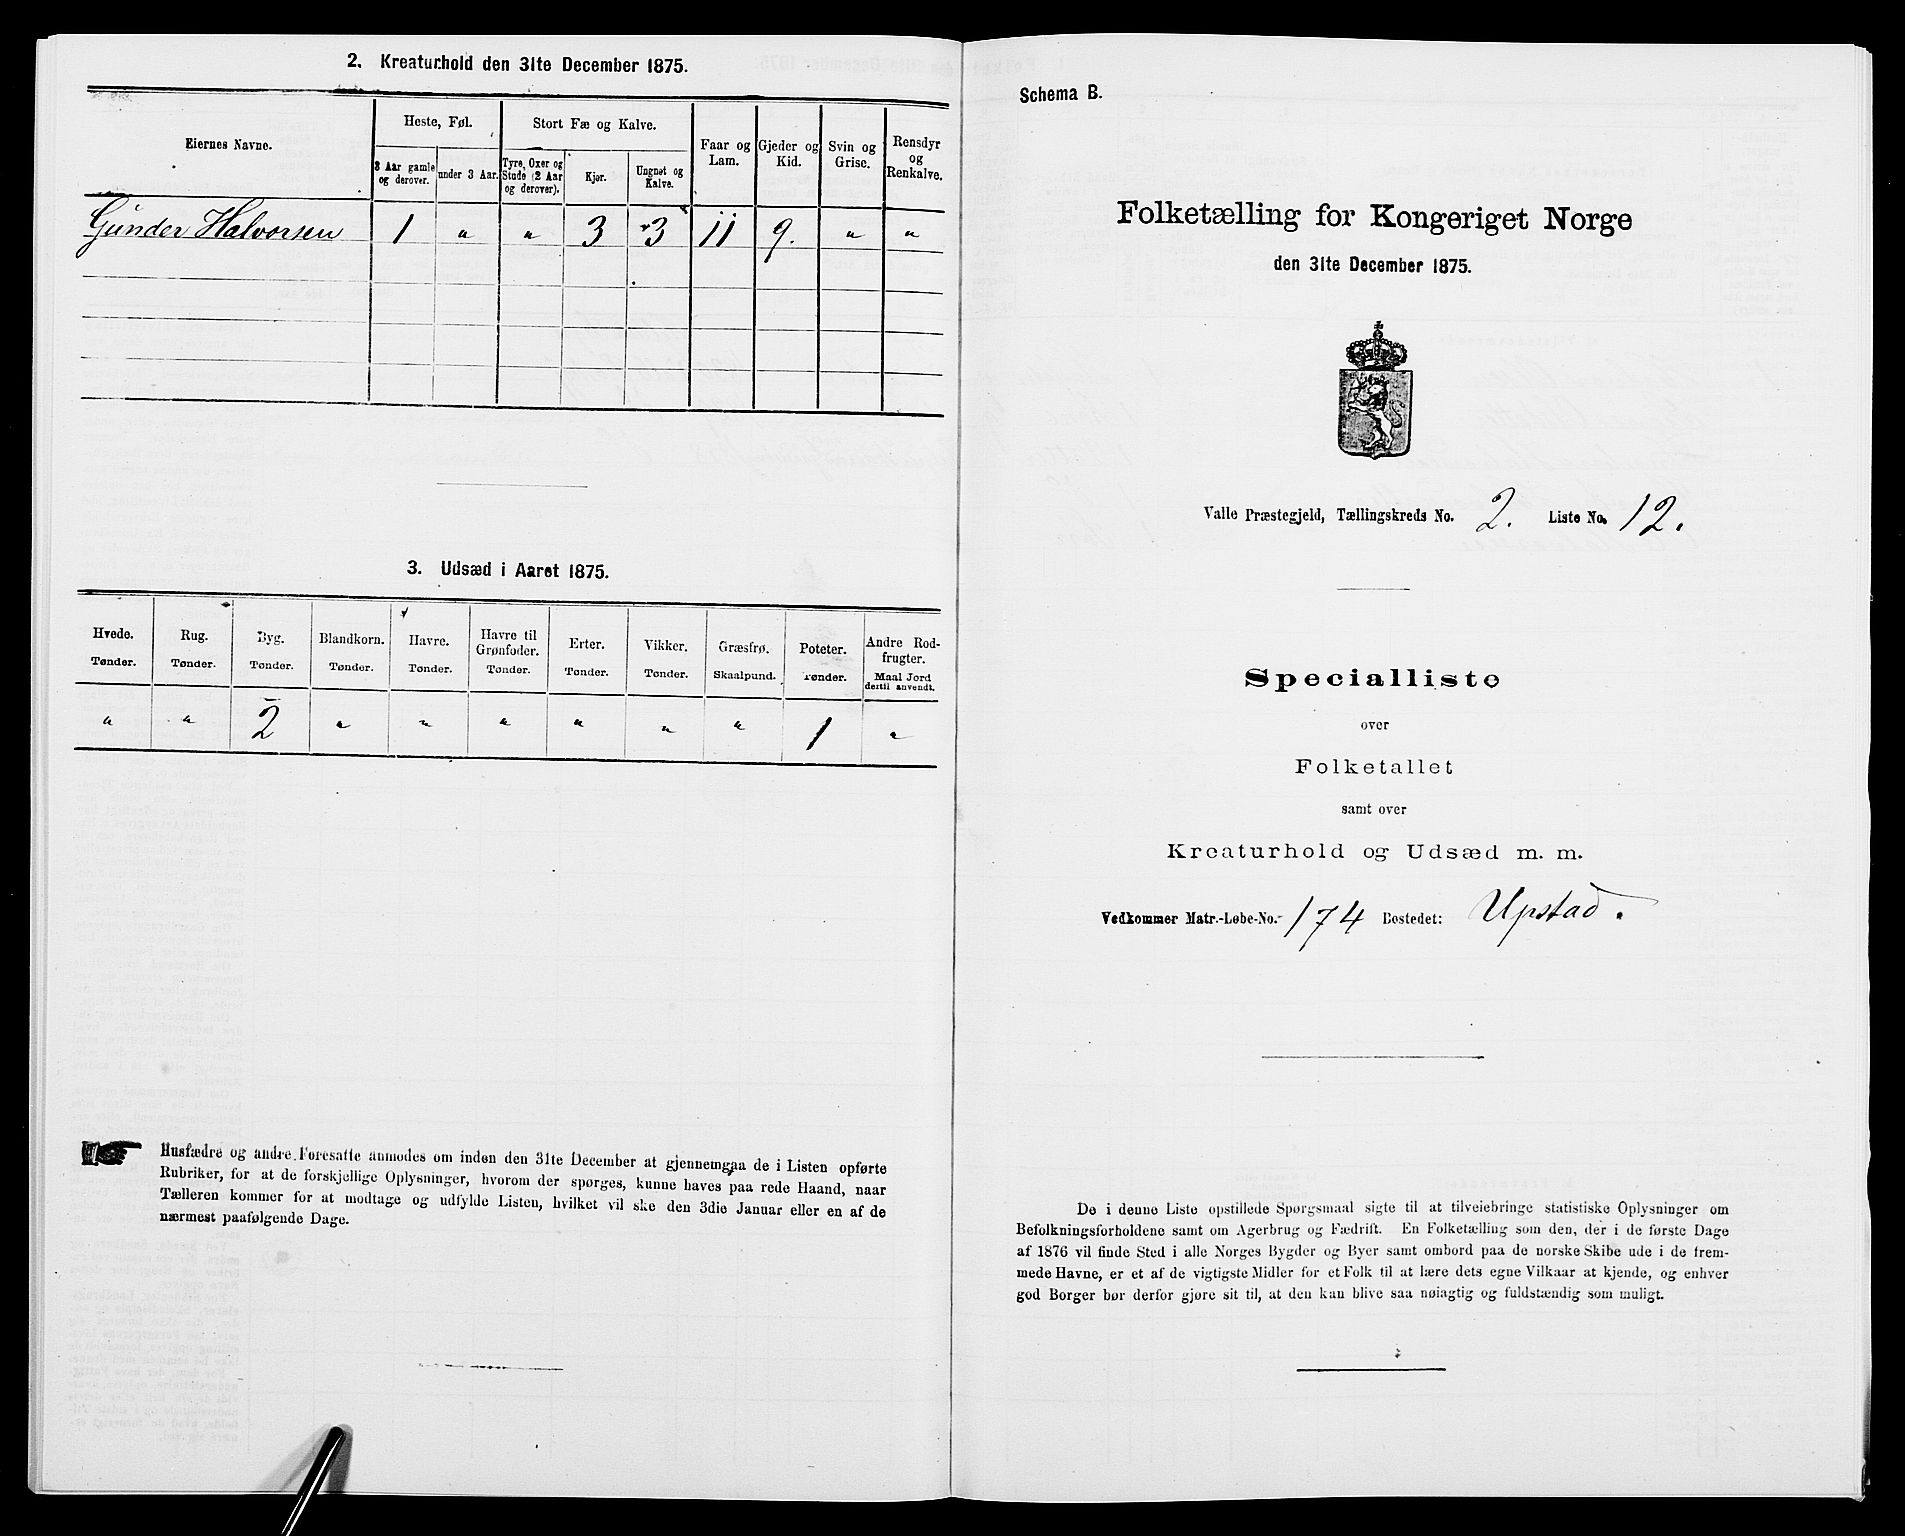 2. Kreaturhold den 31te December 1875.
Eiernes Navne.
Heste, Føl.
Stort Fæ og Kalve.
Faar og Lam.
Gjeder og Kid.
Svin og Grise.
Rensdyr og Renkalve.
3 Aar gamle og derover.
under 3 Aar.
Tyre, Oxer og Stude (2 Aar og derover).
Kjør.
Ungnøt og Kalve.
Gunder Halvorsen 1 " " 3 3 11 9. " "
3. Udsæd i Aaret 1875.
Hvede. Rug. Byg. Blandkorn. Havre. Havre til Grønfoder. Erter. Vikker. Græsfrø. Poteter. Andre Rodfrugter.
Tønder. Tønder. Tønder. Tønder. Tønder. Tønder. Tønder. Tønder. Skaalpund. Tønder. Maal Jord dertil anvendt.
" " 2 " " " " " " 1 "
Husfædre og andre Foresatte anmodes om inden den 31te December at gjennemgaa de i Listen opførte
Rubriker, for at de forskjellige Oplysninger, hvorom der spørges, kunne haves paa rede Haand, naar
Tælleren kommer for at modtage og udfylde Listen, hvilket vil ske den 3die Januar eller en af de
nærmest paafølgende Dage.
Schema B.
Folketælling for Kongeriget Norge
den 31te December 1875.
Valle Præstegjeld, Tællingskreds No. 2. Liste No. 12.
Specialliste
over
Folketallet
samt over
Kreaturhold og Udsæd m. m.
Vedkommer Matr.-Løbe-No. 174 Bostedet: Upstad.
De i denne Liste opstillede Spørgsmaal sigte til at tilveiebringe statistiske Oplysninger om
Befolkningsforholdene samt om Agerbrug og Fædrift. En Folketælling som den, der i de første Dage
af 1876 vil finde Sted i alle Norges Bygder og Byer samt ombord paa de norske Skibe ude i de frem-
mede Havne, er et af de vigtigste Midler for et Folk til at lære dets egne Vilkaar at kjende, og enhver
god Borger bør derfor gjøre sit til, at den kan blive saa nøiagtig og fuldstændig som muligt.